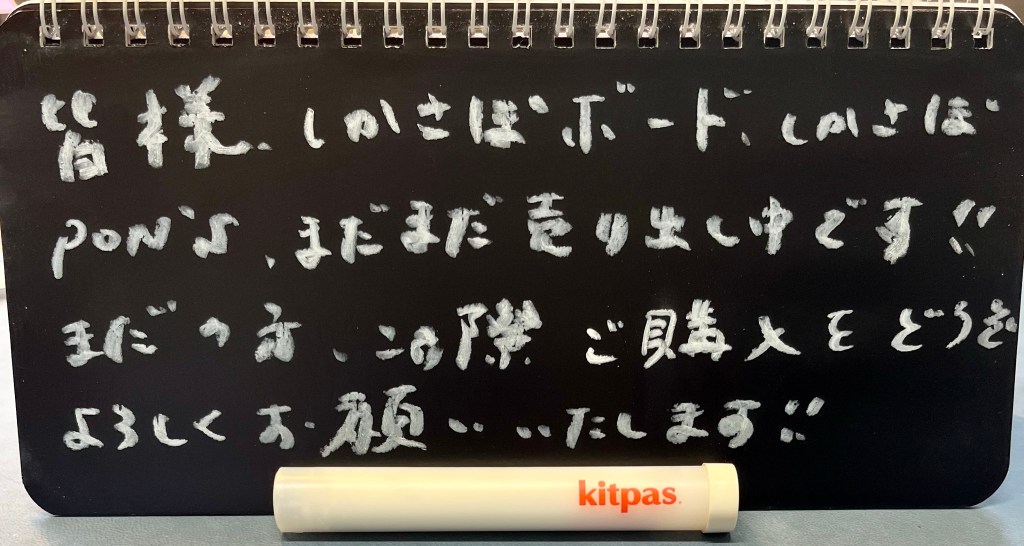 皆様、しかさぼボード、しかさぼ
PON'S、まだまだ売り出し中です!!
まだの方、この際ご購入をどうぞ
よろしくお願いいたします!!
kitpas